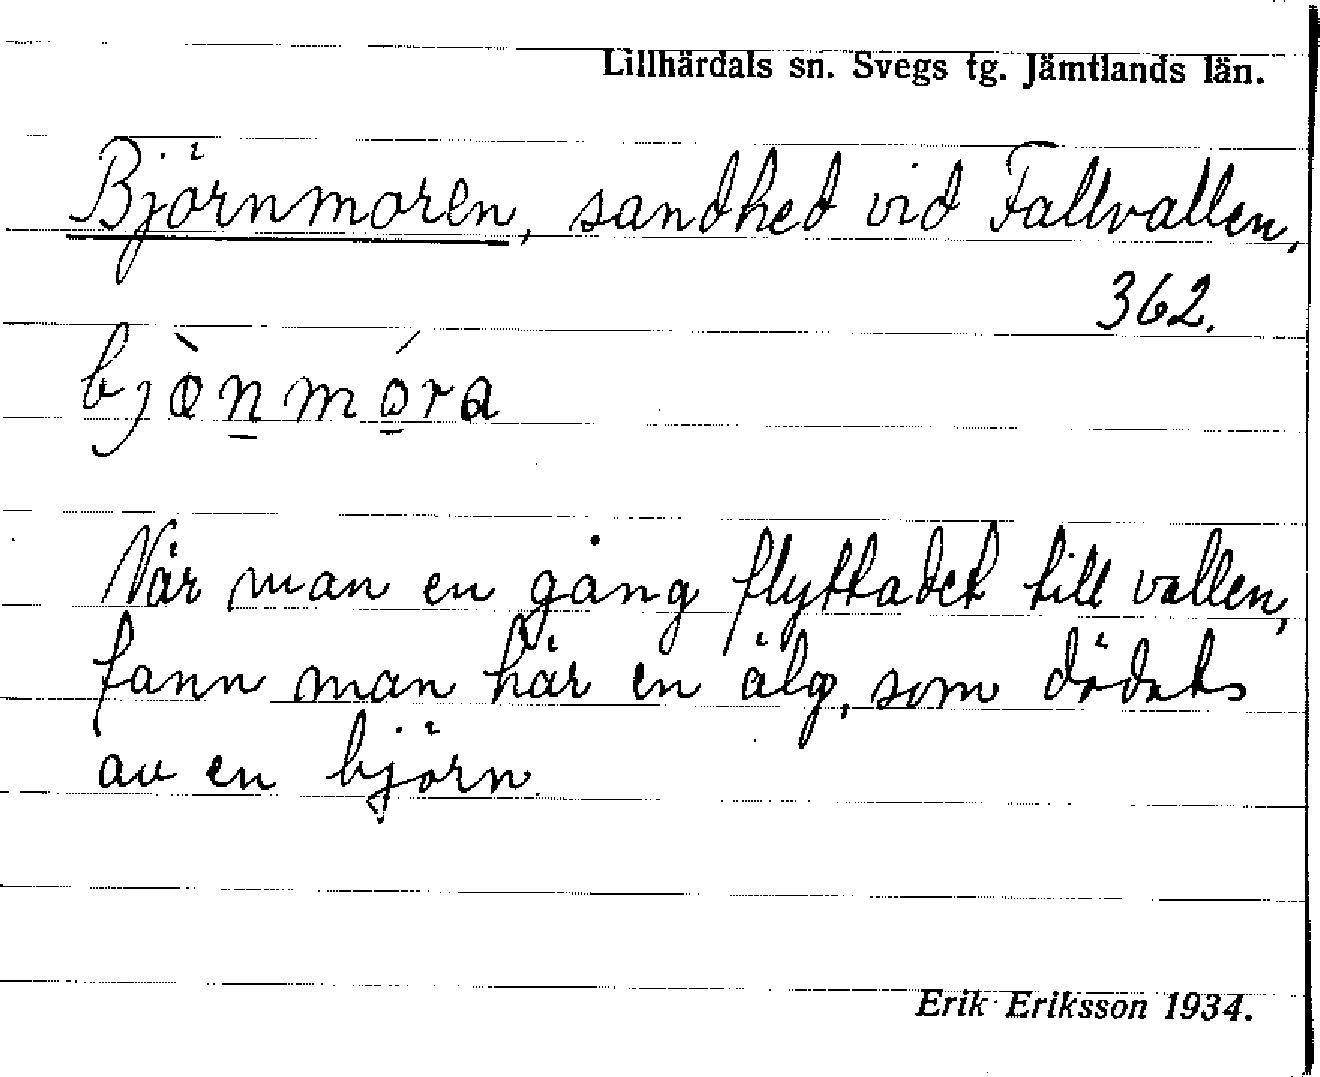 Lillhärdals sn. Svegs tg. Jämtlands län.
Björnmoren, sandhed vid Fallvallen,
362.
När man en gång flyttadet till vallen,
fann man här en älg, som dödats
av en björn.
Erik Eriksson 1934.